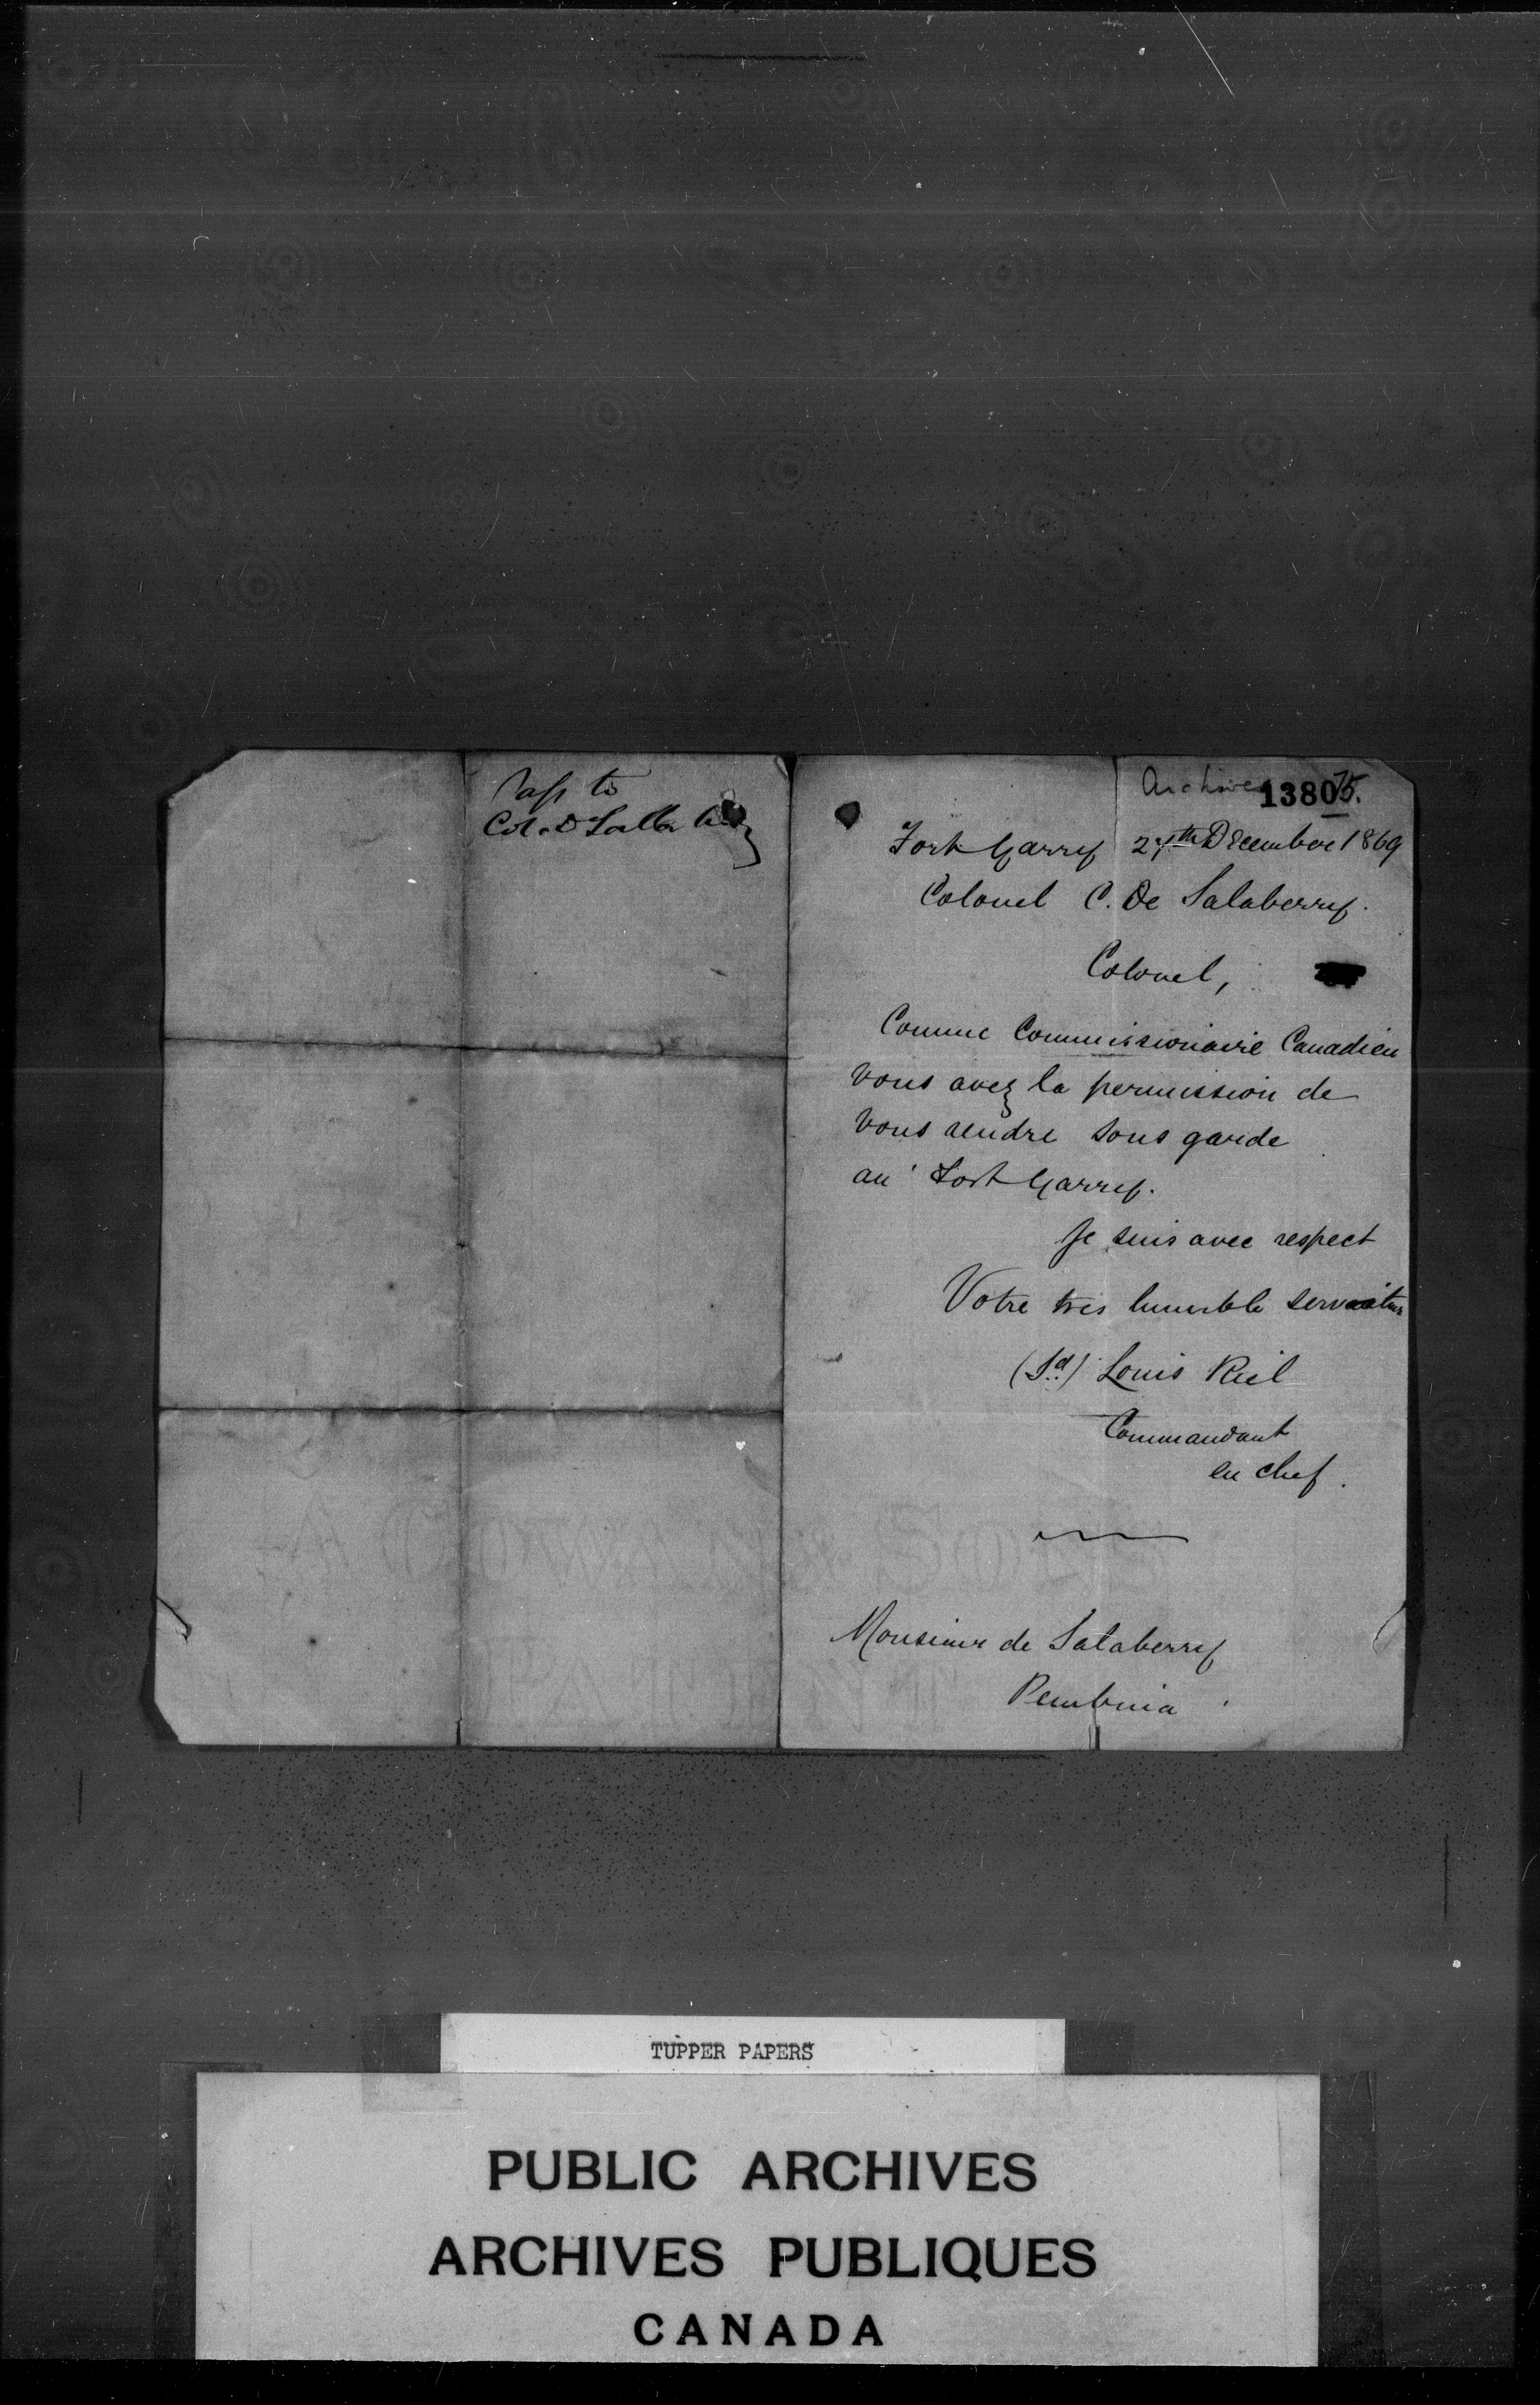 Pass to
Col. D Salla
Archives
Fort Garry 27th December 1869
Colonel C. De Salaberry.
Colonel,
Comme Commissionaire Canadien
vous avez la permission de
vous rendre sous garde
au Fort Garry.
Je suis avec respect
Votre tres humble
(Sd.) Louis Riel
Commandant
en chef.
Monsieur de Salaberry
Pembina
TUPPER PAPERS
PUBLIC ARCHIVES
ARCHIVES PUBLIQUES
CANADA